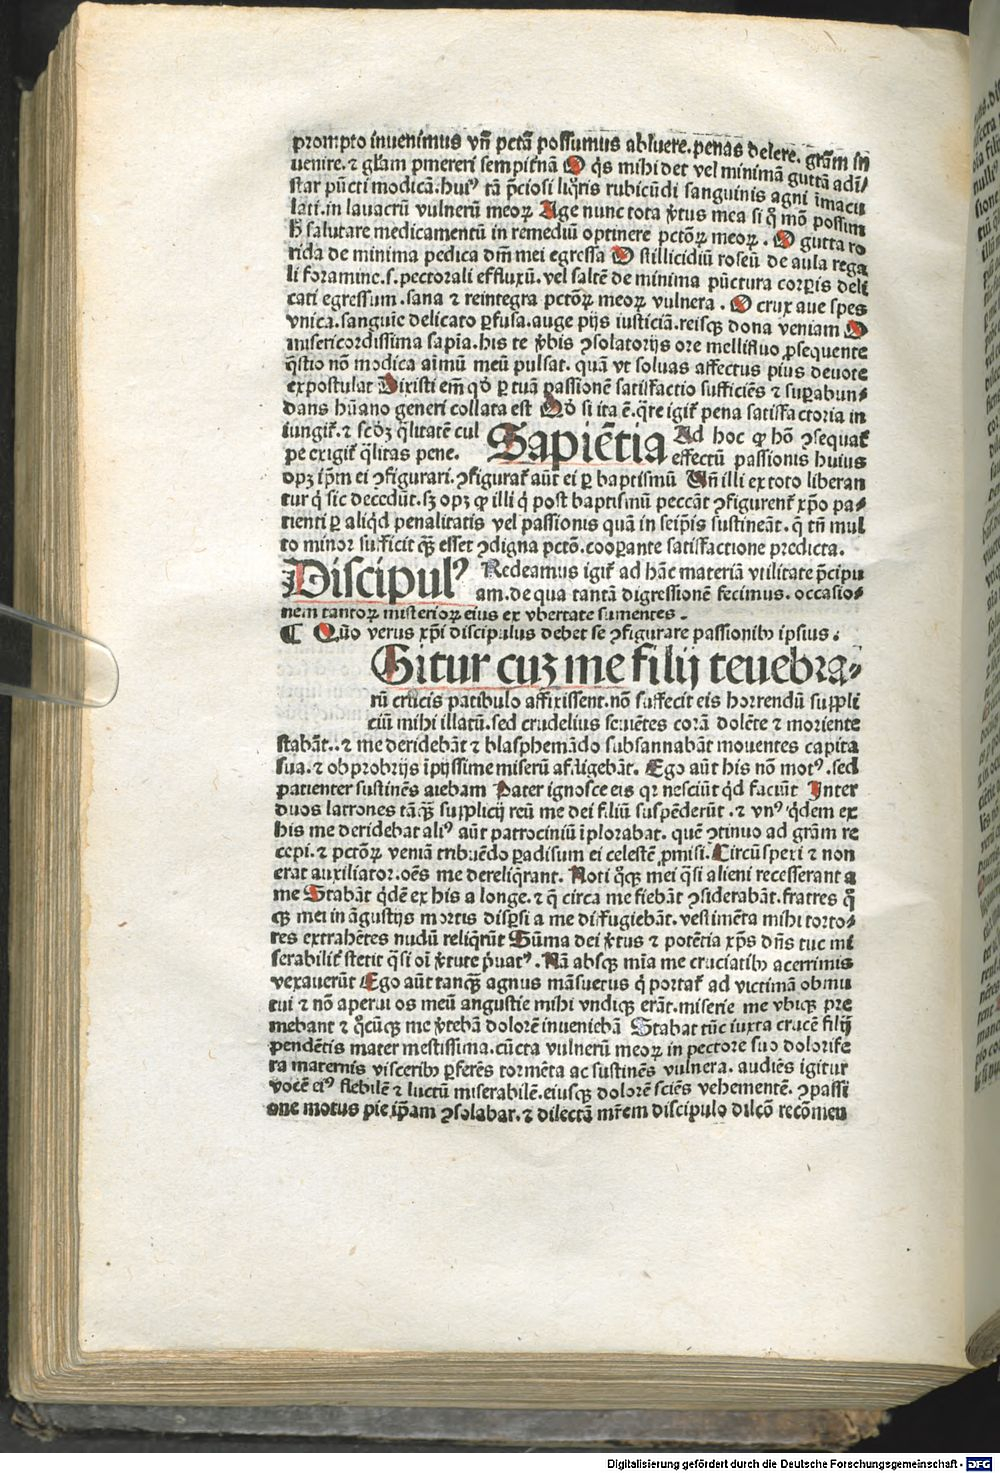 prompto inuenimus vñ pctā possumus abluere. penas delere. grãm in
uenire. ⁊ gl̃am pmereri sempit̃nã O q̇s mihi det vel minimã guttã adi̅/
star pũcti modicã. huiꝰ tã p̃ciosi liq̃ris rubicũdi sanguinis agni ĩmacu
lati. in lauacrũ vulnerũ meoꝝ Age nunc tota v̓tus mea si q̊ mõ possim
h̃ salutare medicamentũ in remediũ optinere pctõꝝ meoꝝ. O gutta ro
rida de minima pedica dñi mei egressa O stillicidiũ roseũ de aula rega
li foramine. s. pectorali effluxũ. vel saltẽ de minima pũctura corꝑis deli
cati egressum. sana ⁊ reintegra pctõꝝ meoꝝ vulnera. O crux aue spes
vnica. sanguĩe delicato ꝑfusa. auge pijs iusticiã. reisqꝫ dona veniam O
misericordissima sapĩa. his te v̓bis ꝯsolatorijs ore mellifluo ꝓsequente
q̃stio nõ modica aĩmũ meũ pulsat. quã vt soluas affectus pius deuote
expostulat Dixisti em̃ qd̓ ꝑ tuã passionẽ satisfactio sufficiẽs ⁊ suꝑabun⸗
dans hũano generi collata est Qd̓ si ita ẽ. q̃re igit᷑ pena satisfactoria in
iungit᷑. ⁊ scd̓ꝫ q̃litatẽ cul
pe exigit᷑ q̃litas pene.
Sapiẽtia Ad hoc ꝙ hõ ꝯsequat᷑
effectũ passionis huius
opꝫ ip̃m ei ꝯfigurari. ꝯfigurat᷑ aũt ei ꝑ baptismũ Vñ illi ex toto liberan
tur q̓ sic decedũt. sꝫ opꝫ ꝙ illi q̓ post baptismũ peccãt ꝯfigurent᷑ xp̃o pa⸗
tienti ꝑ aliq̓d penalitatis vel passionis quã in seip̃is sustineãt. q̃ tñ mul
to minor sufficit q̃ꝫ esset ꝯdigna pctõ. cooꝑante satisfactione predicta.
Discipulꝰ Redeamus igit᷑ ad hãc materiã vtilitate p̃cipu
am. de qua tantã digressionẽ fecimus. occasio⸗
nem tantoꝝ misterioꝝ eius ex vbertate sumentes.
¶ Quõ verus xp̃i discipulus debet se ꝯfigurare passionibꝫ ipsius.
Gitur cuꝫ me filij tenebra⸗
rũ crucis patibulo affixissent. nõ suffecit eis horrendũ suppli
ciũ mihi illatũ. sed crudelius seuiẽtes corã dolẽte ⁊ moriente
stabãt.. ⁊ me deridebãt ⁊ blasphemãdo subsannabãt mouentes capita
sua. ⁊ obprobrijs ĩpijssime miserũ affligebãt. Ego aũt his nõ motꝰ. sed
patienter sustinẽs aiebam Pater ignosce eis qꝛ nesciũt q̓d faciũt Inter
duos latrones tãq̃ꝫ supplicij reũ me dei filiũ suspẽderũt. ⁊ vnꝰ q̓dem ex
his me deridebat aliꝰ aũt patrociniũ ĩplorabat. quẽ ꝯtinuo ad grãm re
cepi. ⁊ pctõꝝ veniã tribuẽdo ꝑadisum ei celestẽ ꝓmisi. Circũspexi ⁊ non
erat auxiliator. oẽs me dereliq̃rant. Noti q̊qꝫ mei q̃si alieni recesserant a
me Stabãt q̓dẽ ex his a longe. ⁊ q̃ circa me fiebãt ꝯsiderabãt. fratres q̊
qꝫ mei in ãgustijs mortis disp̃si a me diffugiebãt. vestimẽta mihi torto⸗
res extrahẽtes nudũ reliq̃rũt Sũma dei v̓tus ⁊ potẽtia xp̃s dñs tuc mi
serabilit᷑ stetit q̃si oĩ v̓tute p̓uatꝰ. Nã absqꝫ mĩa me cruciatibꝫ acerrimis
vexauerũt Ego aũt tanq̃ꝫ agnus mãsuetus q̓ portat᷑ ad victimã obmu
tui ⁊ nõ aperui os meũ angustie mihi vndiqꝫ erãt. miserie me vbiqꝫ pre
mebant ⁊ q̊cũqꝫ me v̓tebã dolorẽ inueniebã Stabat tũc iuxta crucẽ filij
pendẽtis mater mestissima. cũcta vulnerũ meoꝝ in pectore suo dolorife
ra maternis visceribꝫ ꝑferẽs tormẽta ac sustinẽs vulnera. audiẽs igitur
vocẽ eiꝰ flebilẽ ⁊ luctũ miserabilẽ. eiusqꝫ dolorẽ sciẽs vehementẽ. ꝯpassi
one motus pie ip̃am ꝯsolabar. ⁊ dilectã mr̃em discipulo dilc̃õ recõmen
Digitalisierung gefördert durch die Deutsche Forschungsgemeinschaft - DFG